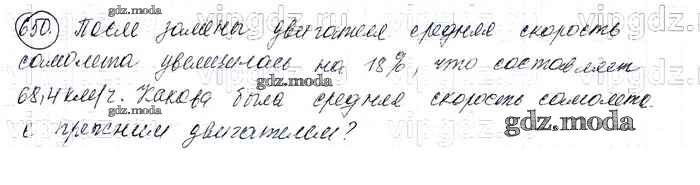 650. После замены двигателя средняя скорость
самолета увеличилась на 18%, что составляет
68,4 км/ч. Какова была средняя скорость самолета
с прежним двигателем?
gdz.moda
gdz.moda
gdz.moda
gdz.moda